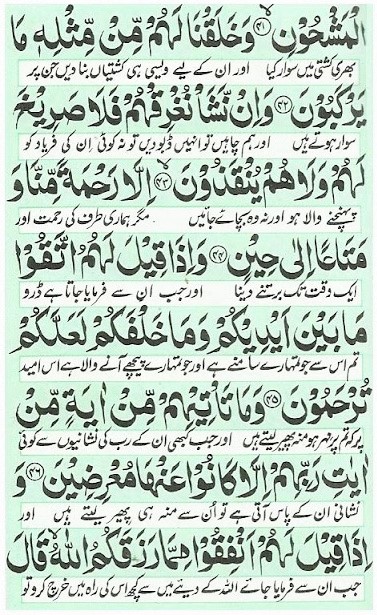 الْمَشْحُوْنِ ﴿۴۱﴾ وَخَلَقْنَا لَهُمْ مِّنْ مِّثْلِهٖ مَا
بھری کشتی میں سوار کیا اور ان کے لیے ویسی ہی کشتیاں بنا دیں جن پر
يَرْكَبُوْنَ ﴿۴۲﴾ وَاِنْ نَّشَاْ نُغْرِقْهُمْ فَلَا صَرِيْخَ
سوار ہوتے ہیں اور ہم چاہیں تو انہیں ڈبو دیں تو نہ کوئی ان کی فریاد کو
لَهُمْ وَلَا هُمْ يُنْقَذُوْنَ ﴿۴۳﴾ اِلَّا رَحْمَةً مِّنَّا وَ
پہنچنے والا ہو اور نہ وہ بچائے جائیں مگر ہماری طرف کی رحمت اور
مَتَاعًا اِلٰى حِيْنٍ ﴿۴۴﴾ وَاِذَا قِيْلَ لَهُمُ اتَّقُوْا
ایک وقت تک برتنے دینا اور جب ان سے فرمایا جاتا ہے ڈرو
مَا بَيْنَ اَيْدِيْكُمْ وَمَا خَلْفَكُمْ لَعَلَّكُمْ
تم اس سے جو تمہارے سامنے ہے اور جو تمہارے پیچھے آنے والا ہے اس امید
تُرْحَمُوْنَ ﴿۴۵﴾ وَمَا تَاْتِيْهِمْ مِّنْ اٰيَةٍ مِّنْ
پر کہ تم پر مہر ہو منہ پھیر لیتے ہیں اور جب کبھی ان کے رب کی نشانیوں سے کوئی
اٰيٰتِ رَبِّهِمْ اِلَّا كَانُوْا عَنْهَا مُعْرِضِيْنَ ﴿۴۶﴾ وَ
نشانی ان کے پاس آتی ہے تو اُس سے منہ ہی پھیر لیتے ہیں اور
اِذَا قِيْلَ لَهُمْ اَنْفِقُوْا مِمَّا رَزَقَكُمُ اللّٰهُ قَالَ
جب ان سے فرمایا جائے اللہ کے دیئے میں سے کچھ اس کی راہ میں خرچ کرو تو